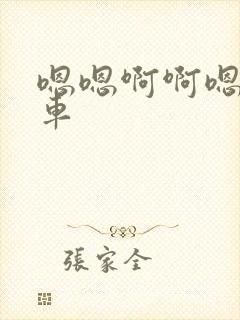 嗯嗯啊啊嗯
车
張家全